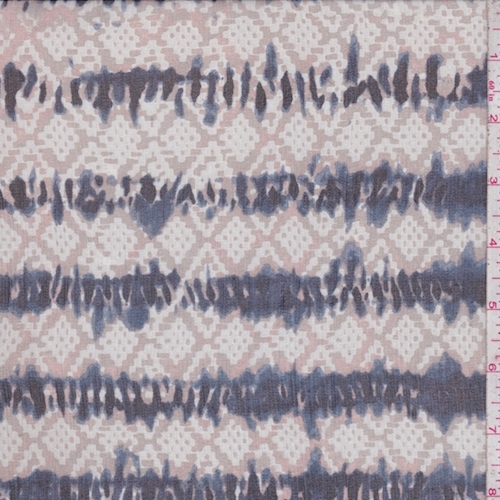 1
⅝"
2
3
4
5
6
7
8